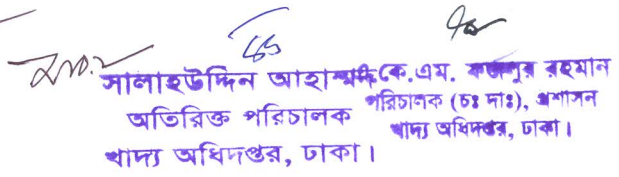 সালাহউদ্দিন আহাম্মদ
অতিরিক্ত পরিচালক
খাদ্য অধিদপ্তর, ঢাকা।
কে.এম. রহমান
পরিচালক (চঃ দাঃ), প্রশাসন
খাদ্য অধিদপ্তর, ঢাকা।